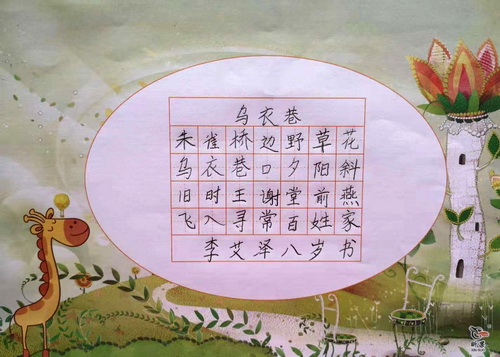 乌衣巷
朱雀桥边野草花
乌衣巷口夕阳斜
旧时王谢堂前燕
飞入寻常百姓家
李艾泽八岁书